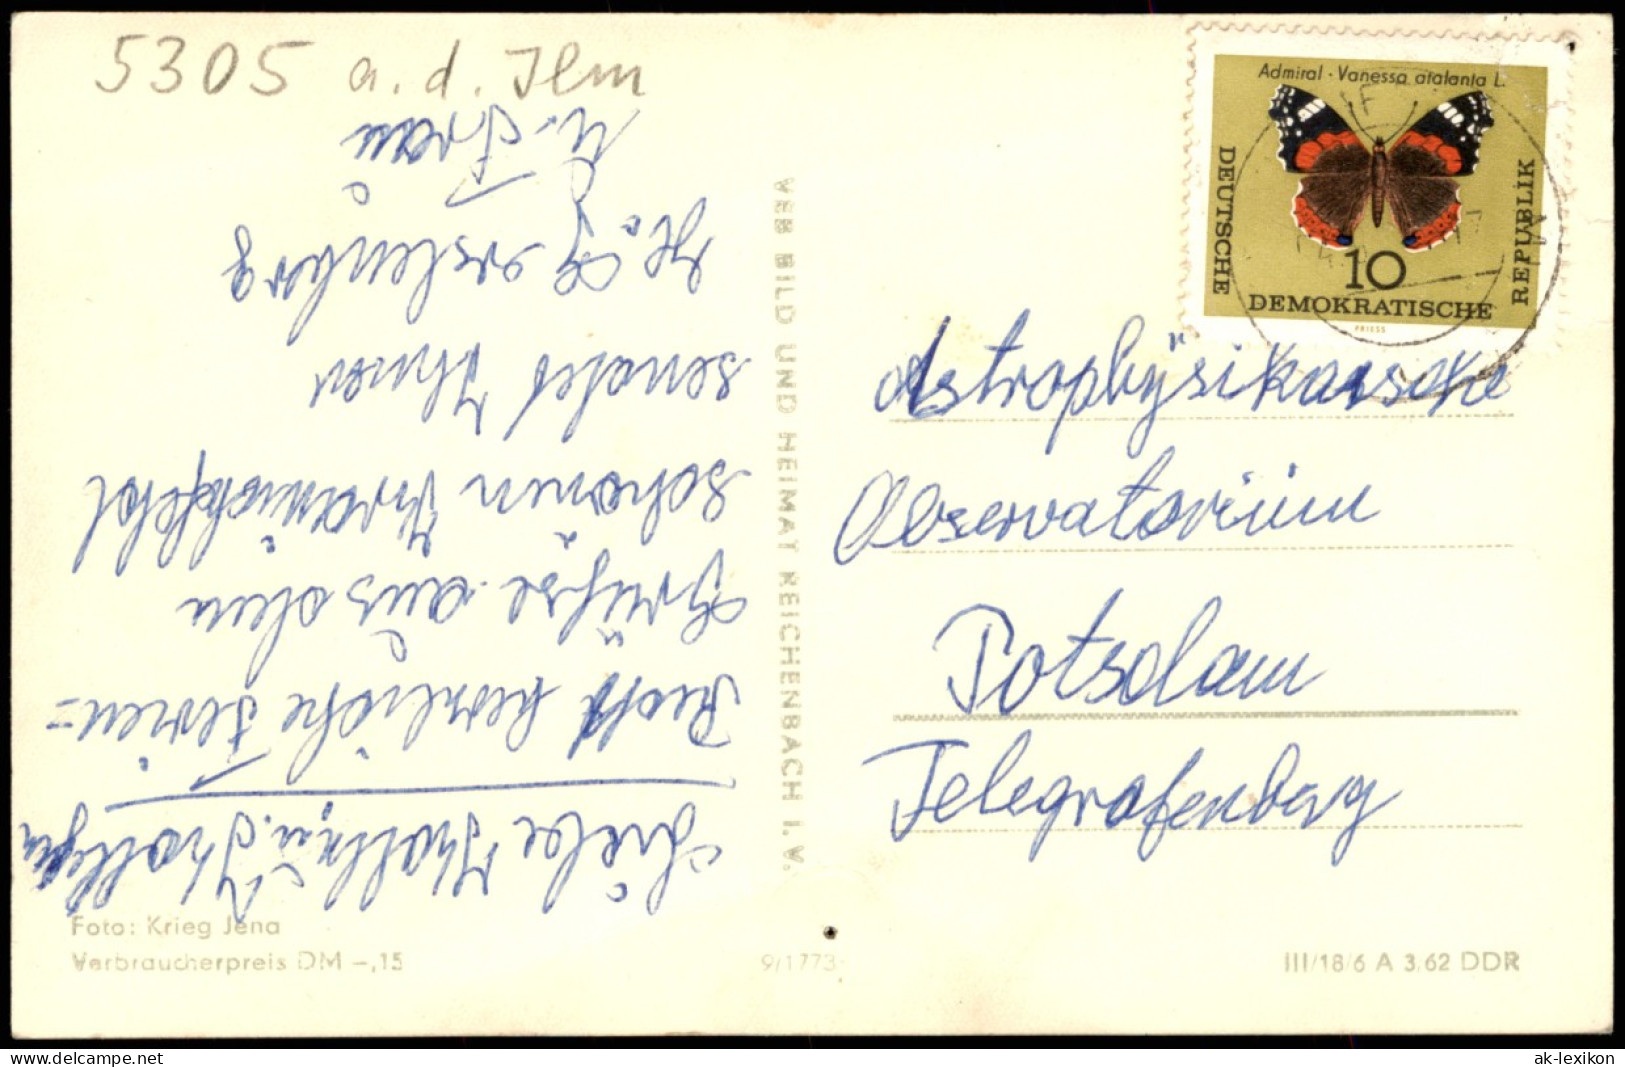 5305 a. d. Ilm
Liebe Kolln. u. Kollegen
Recht herrliche Ferien=
Grüße aus dem
schönen Kranichfeld
sendet Ihnen
H. Gerstenberg
u. Frau
Foto: Krieg Jena
Verbraucherpreis DM -,15
VEB BILD UND HEIMAT REICHENBACH I. V.
9/1773
III/18/6 A 3/62 DDR
Admiral · Vanessa atalanta L.
DEUTSCHE
DEMOKRATISCHE
REPUBLIK
10
PRIESS
Observatorium
Potsdam
Telegrafenberg
www.delcampe.net
ak-lexikon